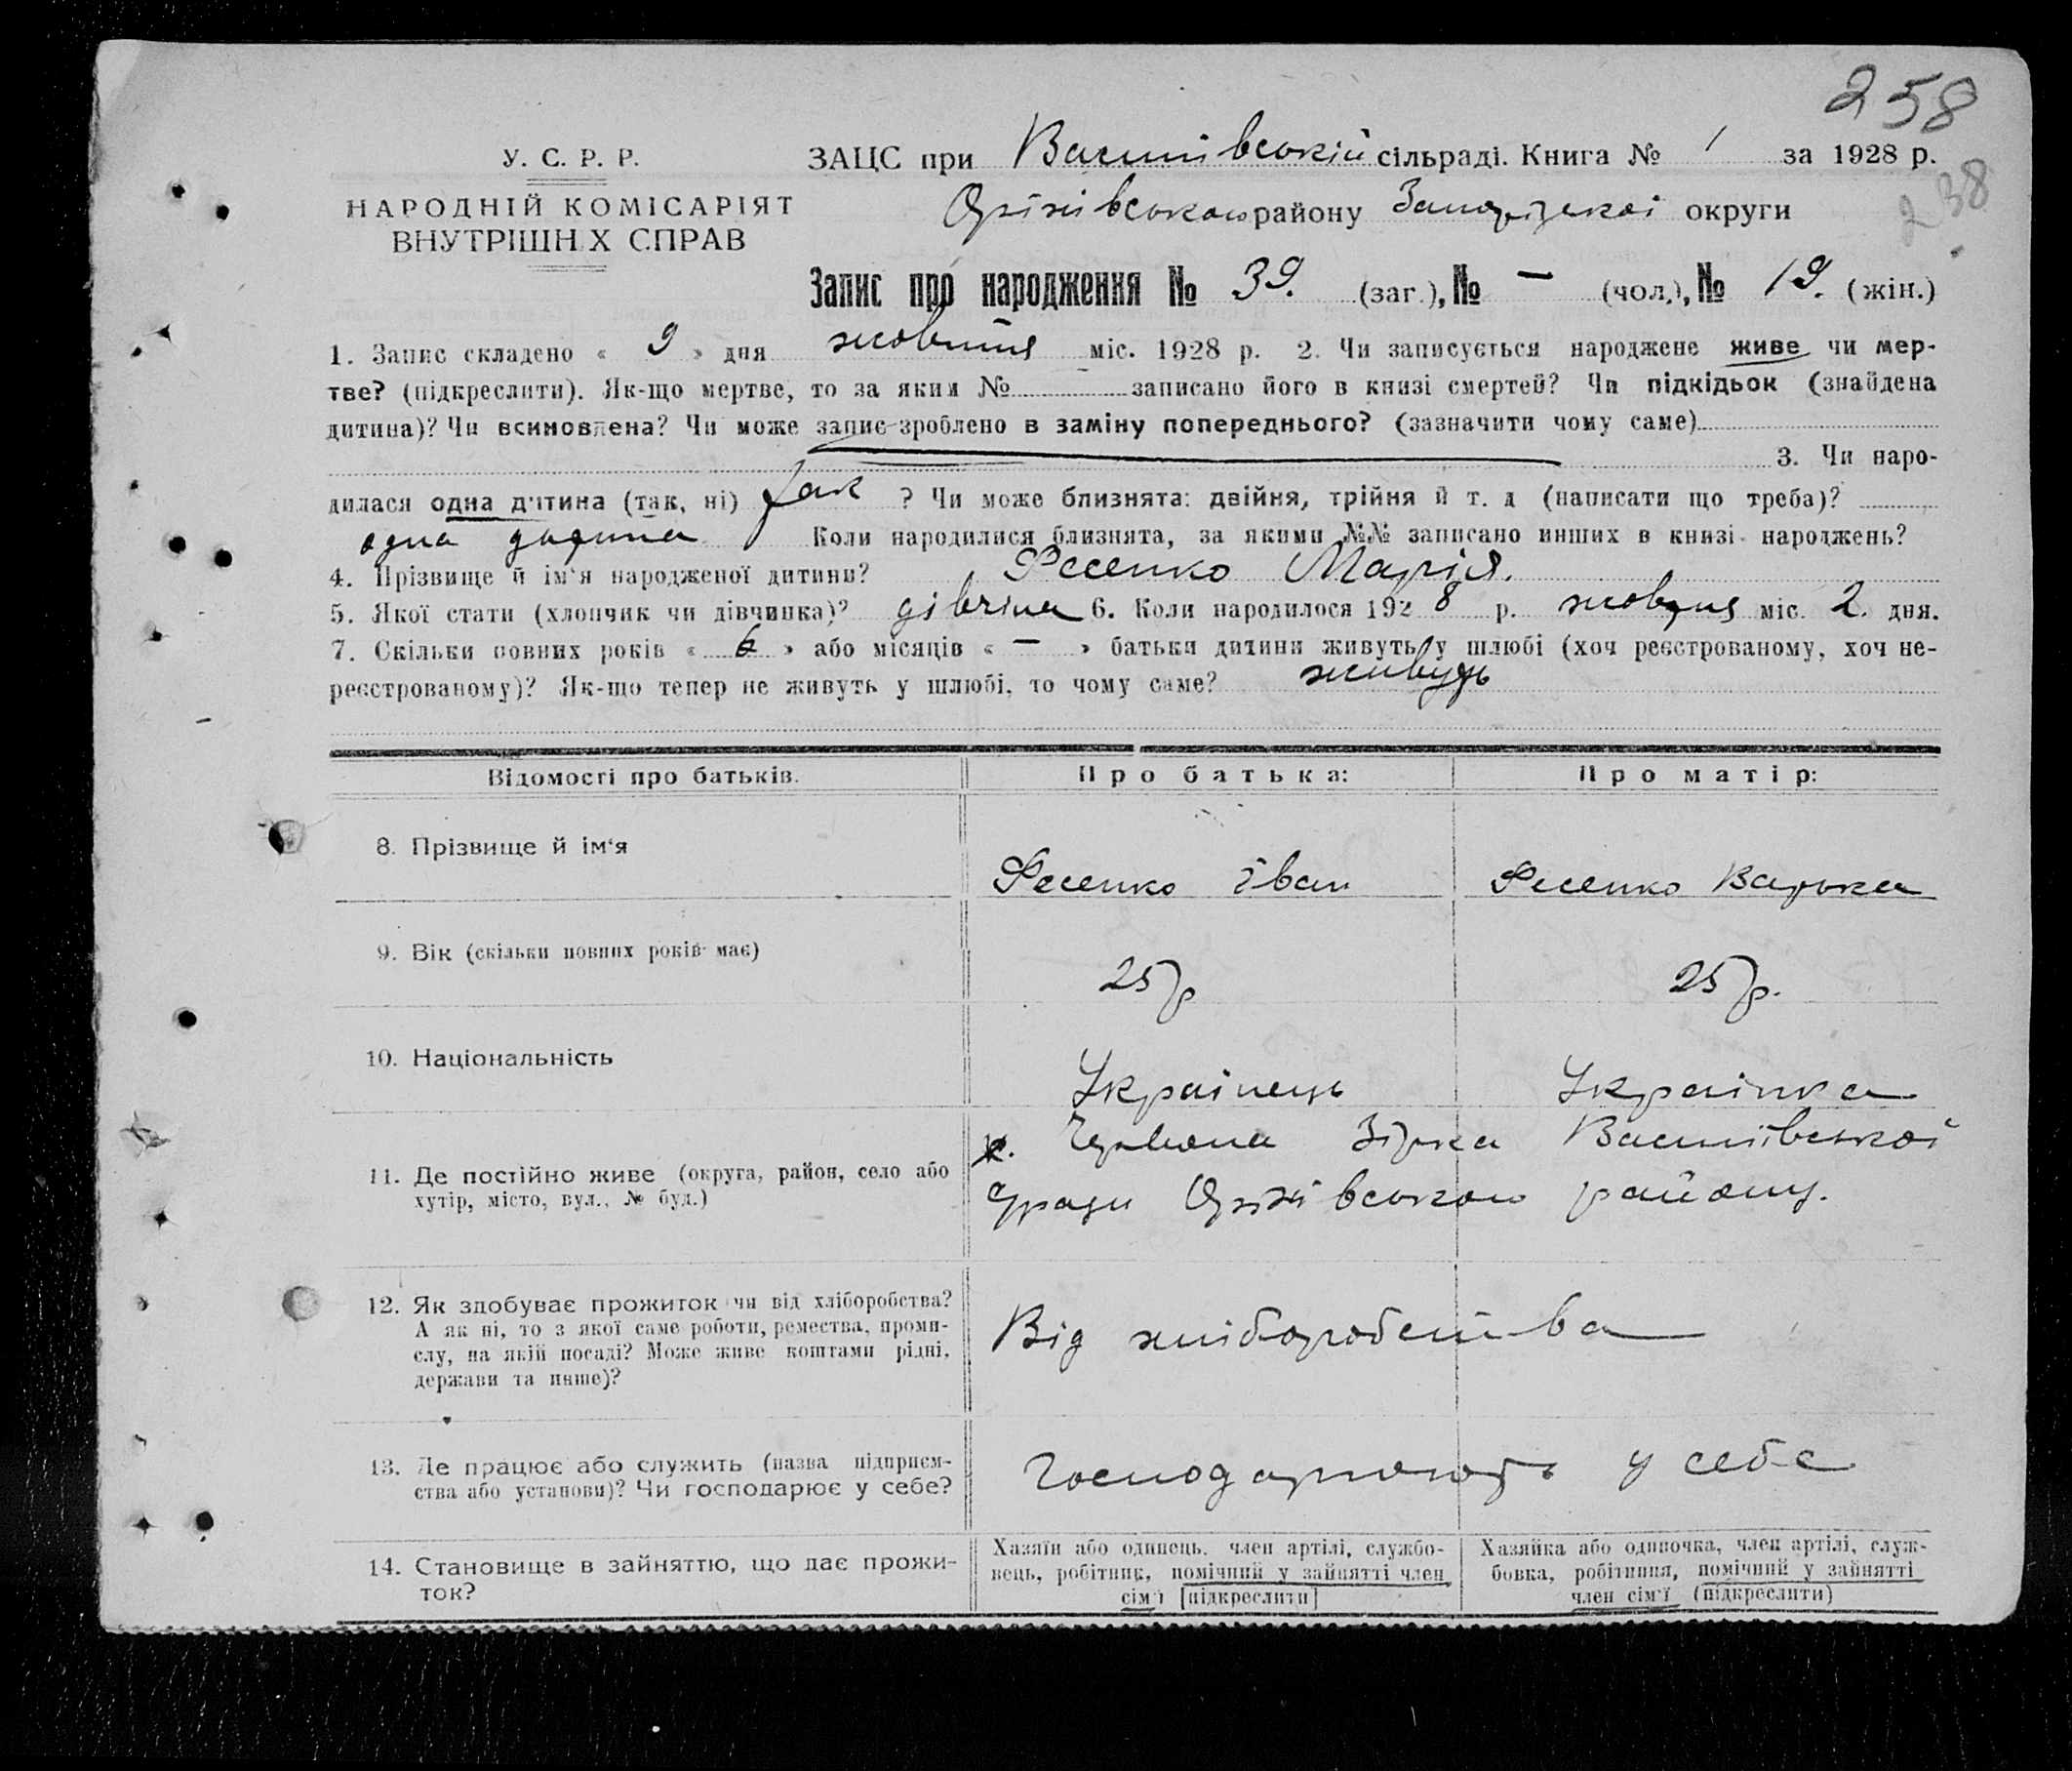 258
238
У. С. Р. Р.
НАРОДНІЙ КОМІСАРІЯТ
ВНУТРІШН Х СПРАВ
ЗАЦС при Василівській сільраді. Книга № 1 за 1928 р.
Оріхівського району Запорізької округи
Запис про народження № 39. (заг.), № — (чол.), № 19. (жін.)
1. Запис складено « 9 » дня жовтня міс. 1928 р. 2. Чи записується народжене живе чи мер-
тве? (підкреслити). Як-що мертве, то за яким № записано його в книзі смертей? Чи підкідьок (знайдена
дитина)? Чи всиновлена? Чи може запис зроблено в заміну попереднього? (зазначити чому саме)
3. Чи наро-
дилася одна дитина (так, ні) так ? Чи може близнята: двійня, трійня й т. д (написати що треба)?
одна дитина Коли народилися близнята, за якими №№ записано инших в книзі народжень?
4. Прізвище й ім'я народженої дитини? Фесенко Марія.
5. Якої стати (хлопчик чи дівчинка)? дівчина 6. Коли народилося 1928 р. жовтня міс. 2. дня.
7. Скільки повних років « 6 » або місяців « — » батьки дитини живуть у шлюбі (хоч реєстрованому, хоч не-
реєстрованому)? Як-що тепер не живуть у шлюбі, то чому саме? живуть
Відомості про батьків. Про батька: Про матір:
8. Прізвище й ім'я Фесенко Іван Фесенко Варька
9. Вік (скільки повних років має) 25 р 25 р.
10. Національність Українець Українка
11. Де постійно живе (округа, район, село або
хутір, місто, вул., № буд.)
х. Червона Зірка Василівської
с/ради Оріхівського району.
12. Як здобуває прожиток чи від хліборобства?
А як ні, то з якої саме роботи, ремества, проми-
слу, на якій посаді? Може живе коштами рідні,
держави та инше)?
Від хліборобства
13. Де працює або служить (назва підприєм-
ства або установи)? Чи господарює у себе?
Господарюють у себе
14. Становище в зайняттю, що дає прожи-
ток?
Хазяїн або одинець, член артілі, службо-
вець, робітник, помічний у зайнятті член
сім'ї [підкреслити]
Хазяйка або одиночка, член артілі, служ-
бовка, робітниця, помічний у зайнятті
член сім'ї (підкреслити)